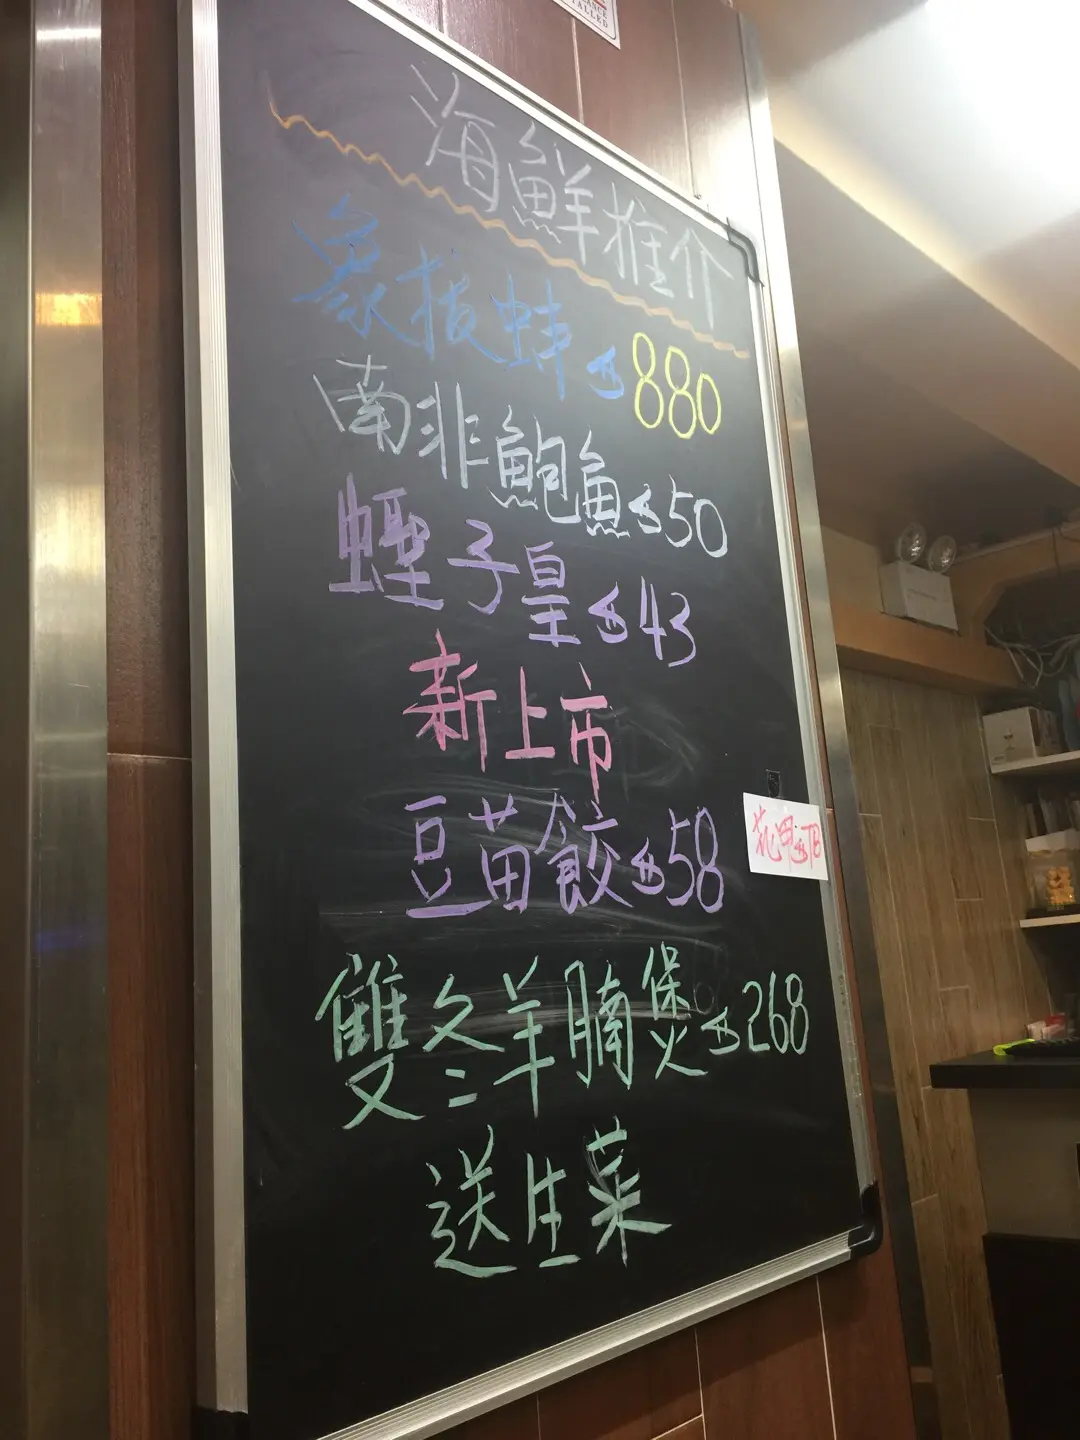 海鮮推介
象拔蚌$880
南非鮑魚$50
蟶子皇$43
新上市
豆苗餃$58
花甲$78
雙冬羊腩煲$268
送生菜